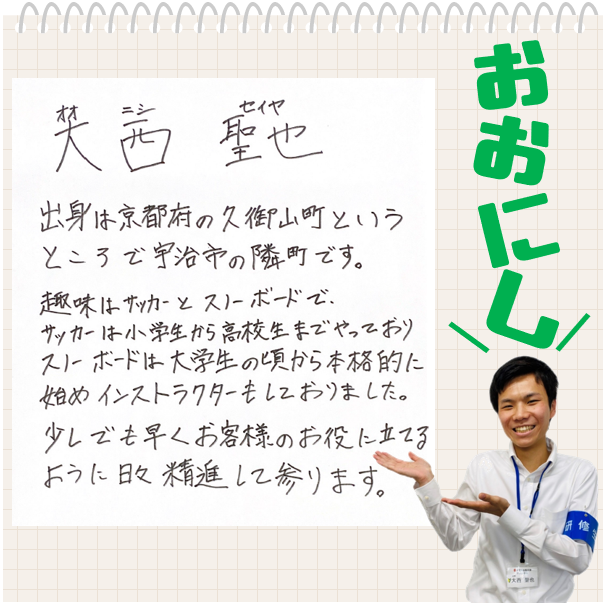 オオ ニシ セイヤ
大西 聖也
出身は京都府の久御山町という
ところで宇治市の隣町です。
趣味はサッカーとスノーボードで、
サッカーは小学生から高校生までやっており
スノーボードは大学生の頃から本格的に
始めインストラクターもしておりました。
少しでも早くお客様のお役に立てる
ように日々精進して参ります。
おおにし
研修
大西 聖也